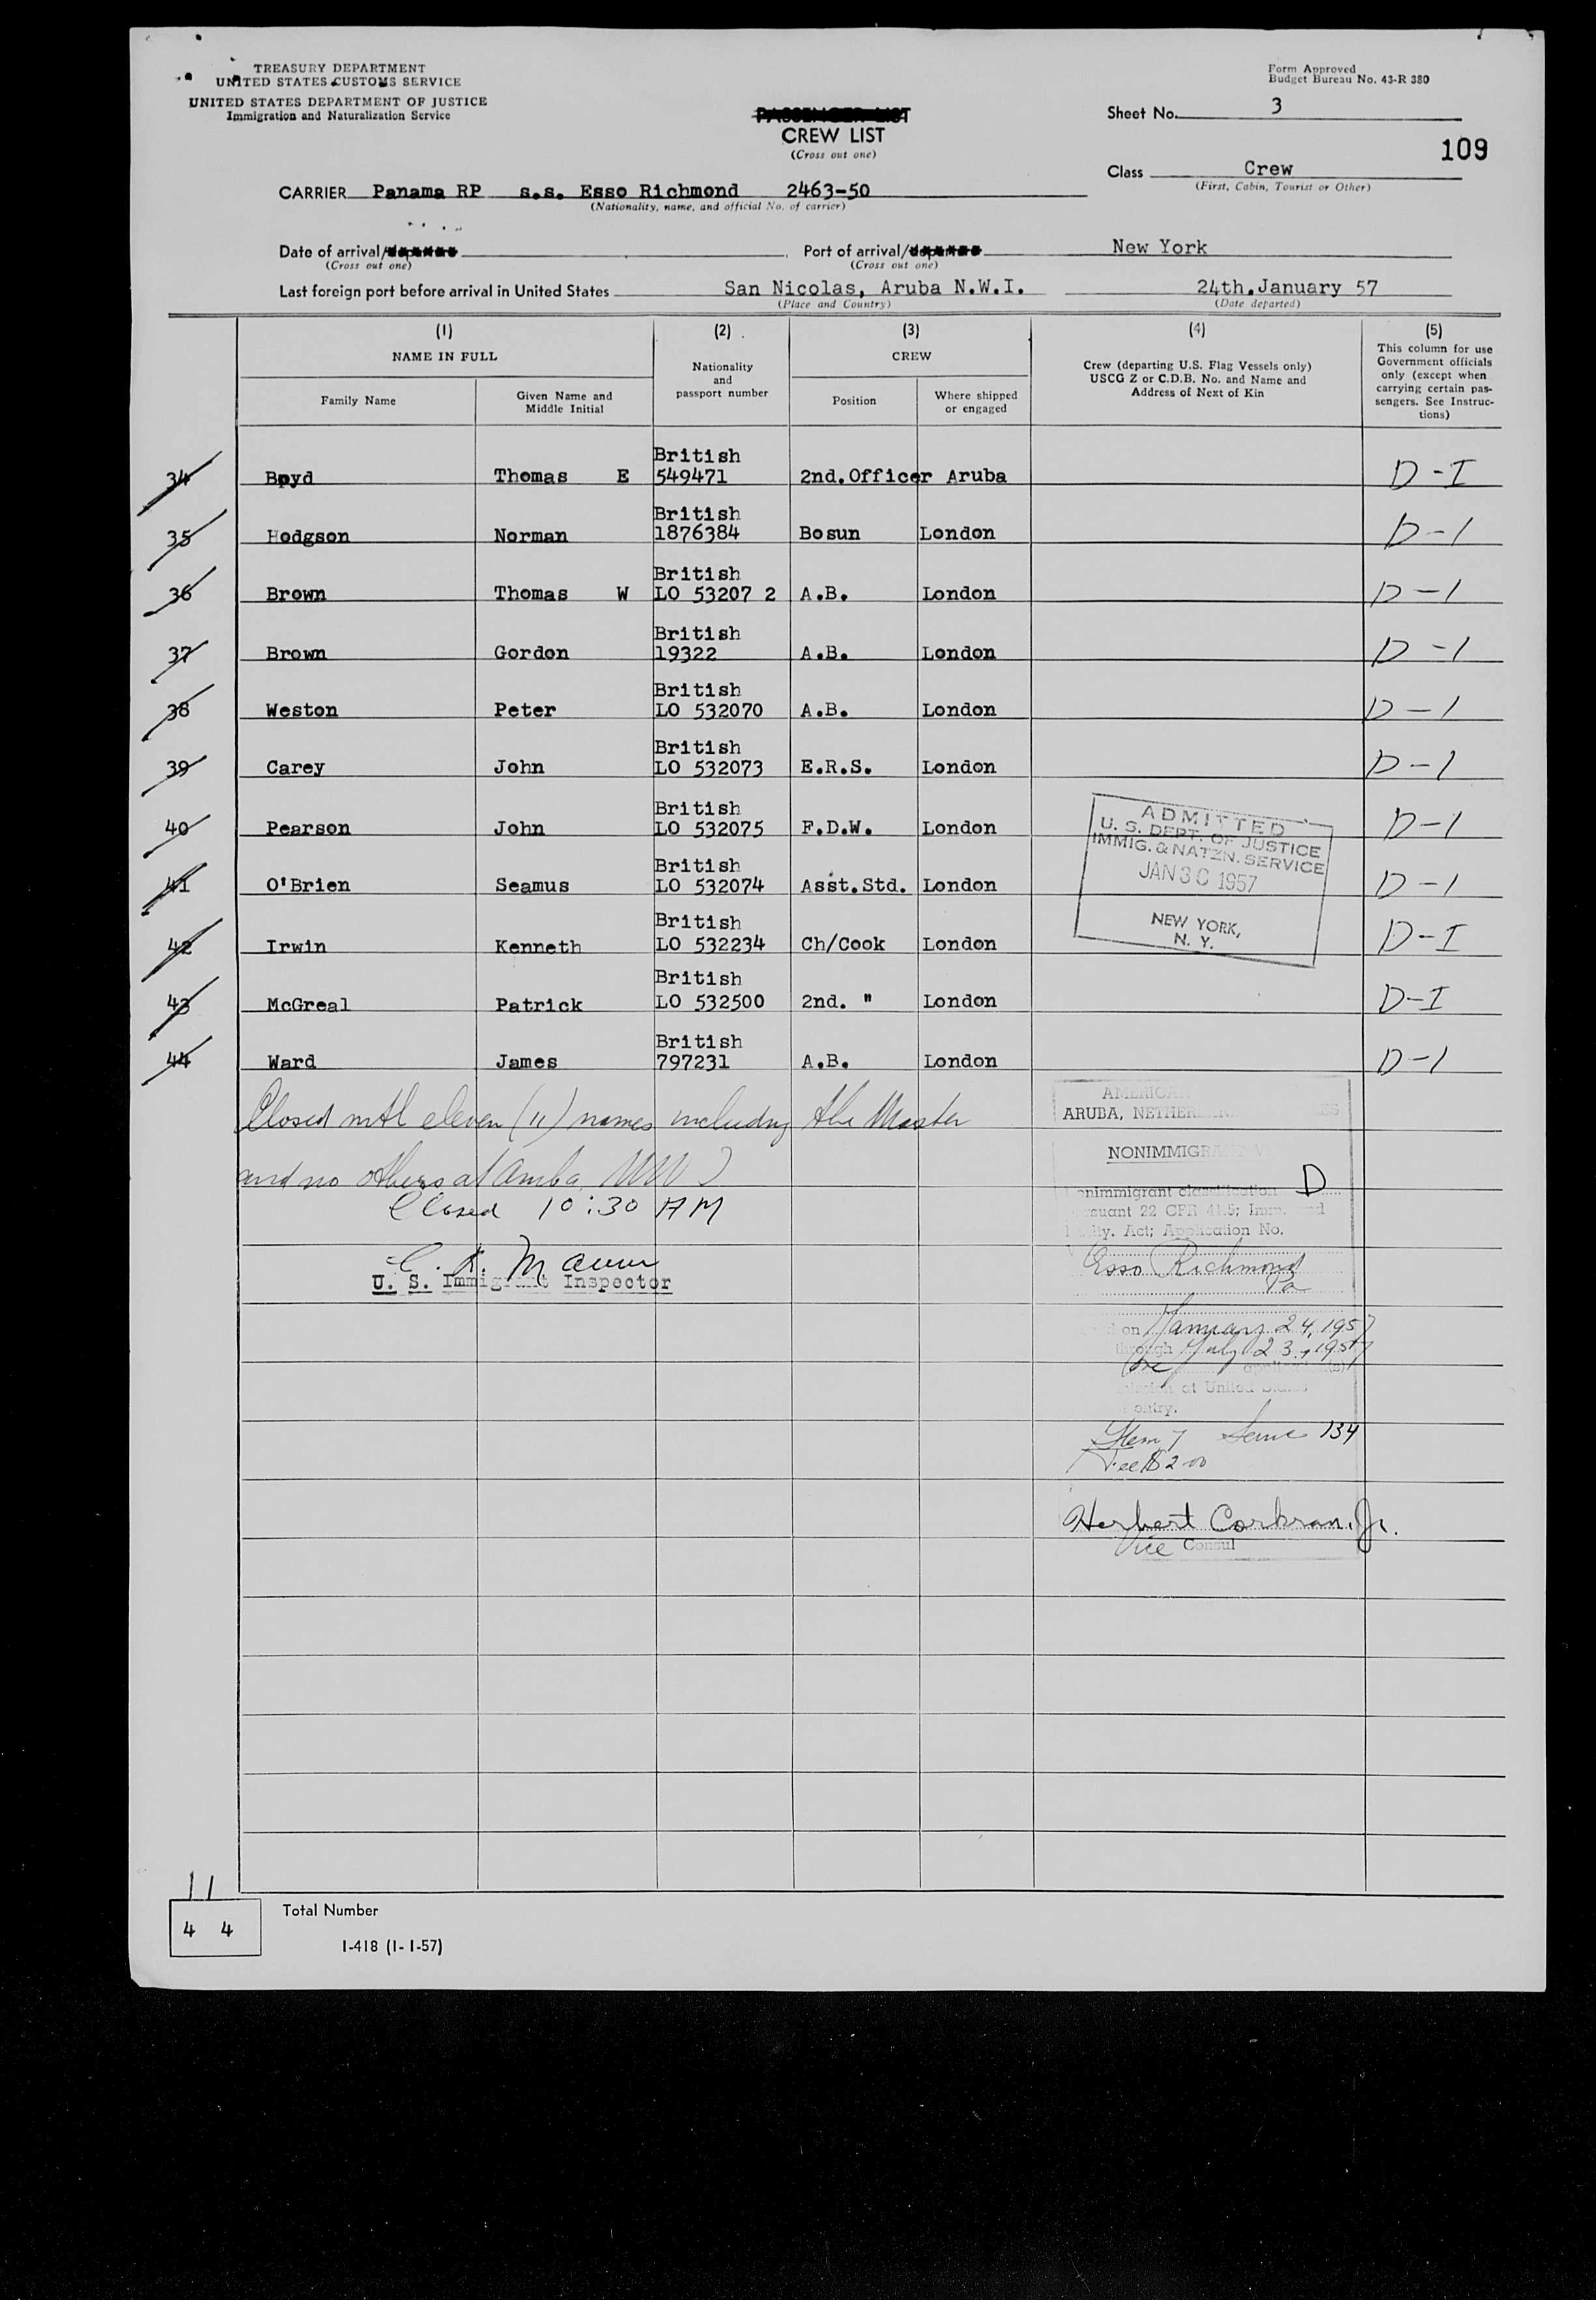 TREASURY DEPARTMENT
UNITED STATES CUSTOMS SERVICE
UNITED STATES DEPARTMENT OF JUSTICE
Immigration and Naturalization Service
Form Approved
Budget Bureau No. 43-R 380
PASSENGER LIST
CREW LIST
(Cross out one)
Sheet No. 3
109
Class Crew
(First, Cabin, Tourist or Other)
CARRIER Panama RP s.s. Esso Richmond 2463-50
(Nationality, name, and official No. of carrier)
Date of arrival/ Port of arrival/ New York
(Cross out one) (Cross out one)
Last foreign port before arrival in United States San Nicolas, Aruba N.W.I. 24th.January 57
(Place and Country) (Date departed)
(1) (2) (3) (4) (5)
NAME IN FULL
Family Name
Given Name and Middle Initial
Nationality and passport number
CREW
Position
Where shipped or engaged
Crew (departing U.S. Flag Vessels only) USCG Z or C.D.B. No. and Name and Address of Next of Kin
This column for use Government officials only (except when carrying certain passengers. See Instructions)
British
34 Boyd Thomas E 549471 2nd.Officer Aruba D-I
British
35 Hodgson Norman 1876384 Bosun London D-1
British
36 Brown Thomas W LO 53207 2 A.B. London D-1
British
37 Brown Gordon 19322 A.B. London D-1
British
38 Weston Peter LO 532070 A.B. London D-1
British
39 Carey John LO 532073 E.R.S. London D-1
British
40 Pearson John LO 532075 F.D.W. London D-1
British
41 O'Brien Seamus LO 532074 Asst.Std. London D-1
British
42 Irwin Kenneth LO 532234 Ch/Cook London D-I
British
43 McGreal Patrick LO 532500 2nd. " London D-I
British
44 Ward James 797231 A.B. London D-1
ADMITTED
U. S. DEPT. OF JUSTICE
IMMIG. & NATZN. SERVICE
JAN 30 1957
NEW YORK,
N. Y.
Closed with eleven (11) names including the Master
and no others at Aruba, NWI
Closed 10:30 AM
U. S. Immigrant Inspector
AMERICAN
ARUBA, NETHER
NONIMMIGRANT V
nonimmigrant classification D
suant 22 CFR 41.5; Imm. and
lty. Act; Application No.
Esso Richmond
on January 24, 1957
through July 23, 1957
at United
entry.
Item 7 134
Fee $2.00
Herbert Corkran, Jr.
Vice Consul
11
4 4
Total Number
I-418 (1-1-57)